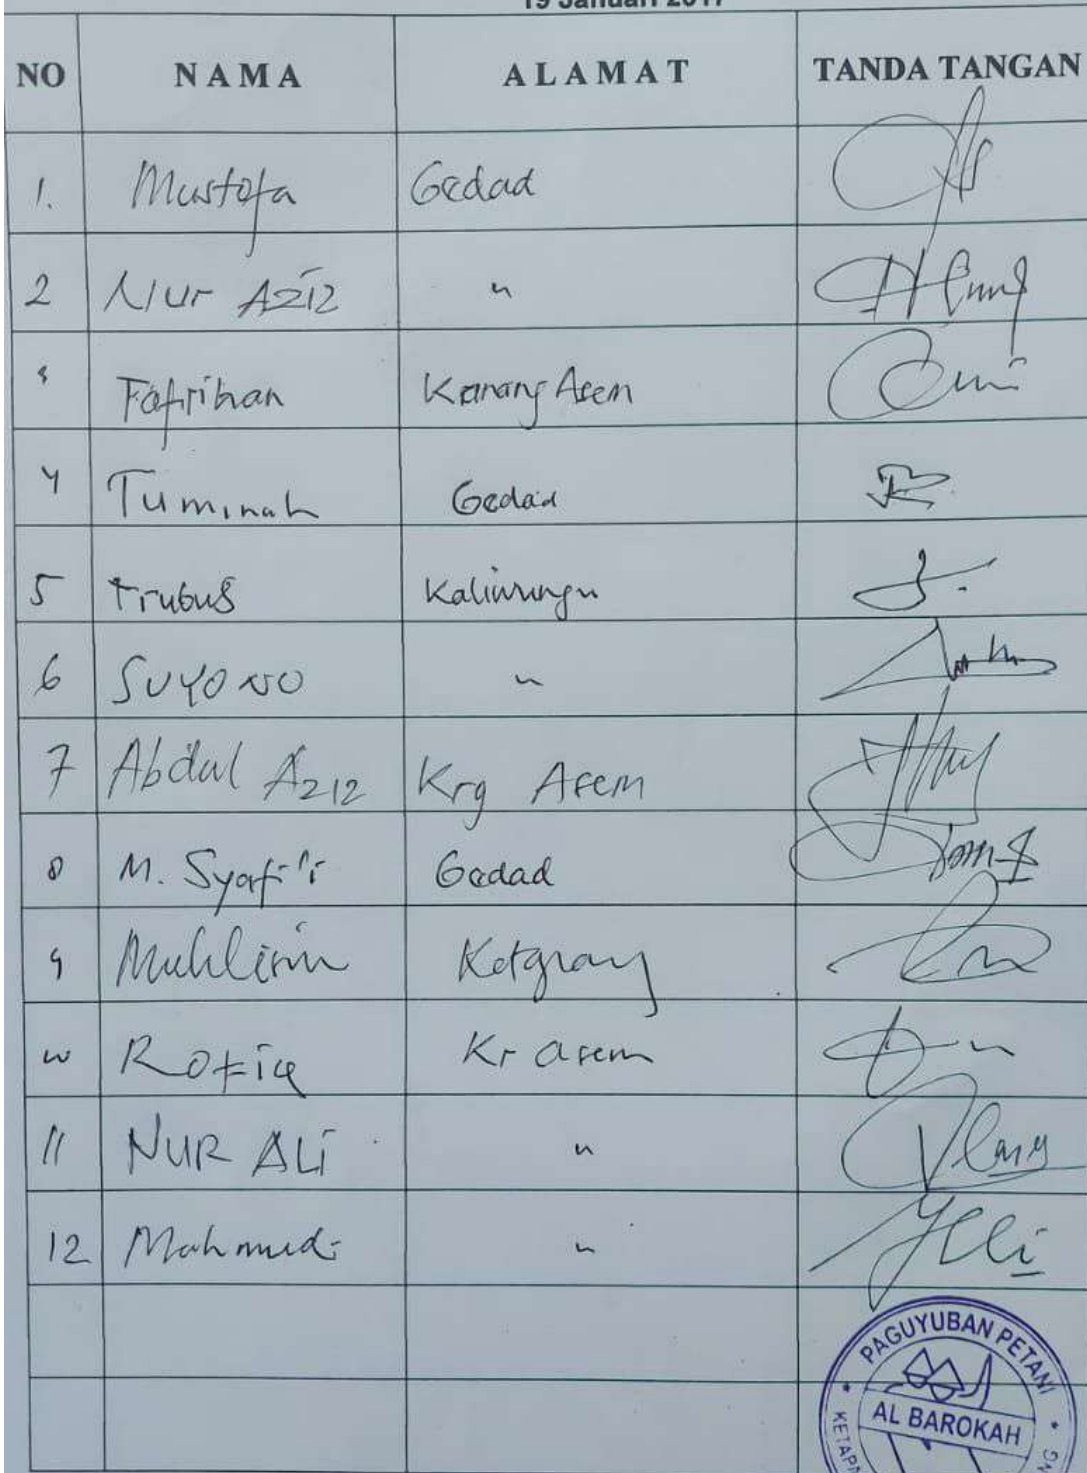 19 Januari 2017
NO NAMA ALAMAT TANDA TANGAN
1. Mustofa Gedad
2 Nur Aziz "
3 Fafrihan Karang Asem
4 Tuminah Gedad
5 Trubus Kaliwungu
6 SUYONO "
7 Abdul Aziz Krg Asem
8 M. Syafi'i Gedad
9 Muhlisin
10 Rofiq Kr asem
11 NUR ALI "
12 Mahmudi "
PAGUYUBAN PETANI
AL BAROKAH